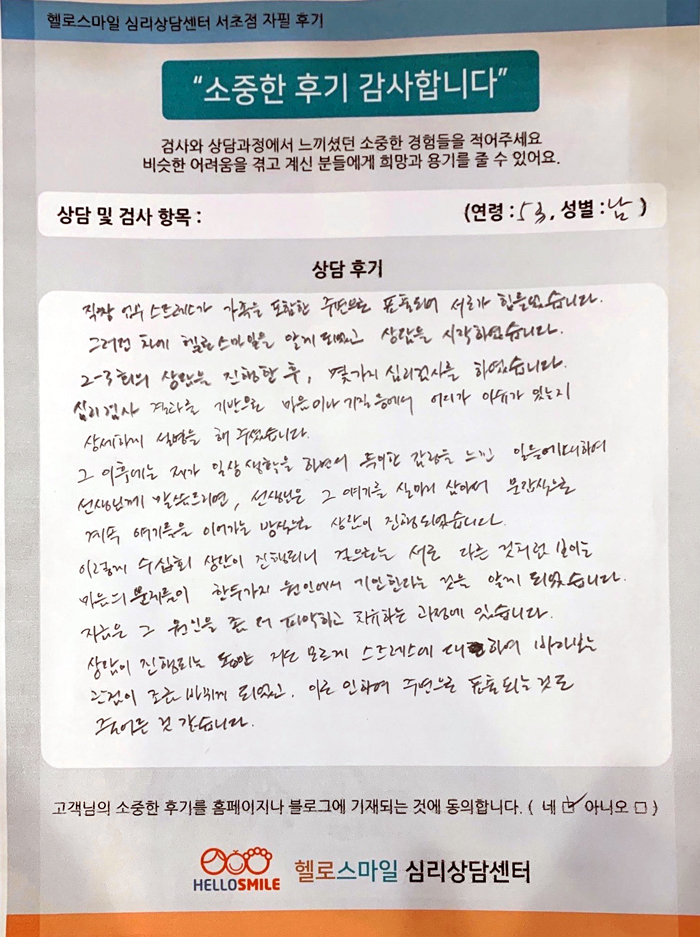 헬로스마일 심리상담센터 서초점 자필 후기
“소중한 후기 감사합니다”
검사와 상담과정에서 느끼셨던 소중한 경험들을 적어주세요
비슷한 어려움을 겪고 계신 분들에게 희망과 용기를 줄 수 있어요.
상담 및 검사 항목 : (연령 : 53, 성별 : 남 )
상담 후기
직장 업무 스트레스가 가족을 포함한 주변으로 표출되어 서로가 힘들었습니다.
그러던 차에 헬로스마일을 알게 되었고 상담을 시작하였습니다.
2-3회의 상담을 진행한 후, 몇가지 심리검사를 하였습니다.
심리검사 결과를 기반으로 마음이나 기질 등에서 어디가 이슈가 있는지
상세하게 설명을 해 주셨습니다.
그 이후에는 제가 일상생활을 하면서 특이한 감정을 느낀 일들에 대하여
선생님께 말씀드리면, 선생님은 그 얘기를 실마리 삼아서 문답식으로
계속 얘기를 이어가는 방식으로 상담이 진행되었습니다.
이렇게 수십회 상담이 진행되니 겉으로는 서로 다른 것처럼 보이는
마음의 문제들이 한두가지 원인에서 기인한다는 것을 알게 되었습니다.
지금은 그 원인을 좀 더 파악하고 치유하는 과정에 있습니다.
상담이 진행되는 동안 저도 모르게 스트레스에 대하여 바라보는
관점이 조금 바뀌게 되었고, 이로 인하여 주변으로 표출되는 것도
줄어든 것 같습니다.
고객님의 소중한 후기를 홈페이지나 블로그에 기재되는 것에 동의합니다. ( 네 ☑ 아니오 □ )
HELLOSMILE 헬로스마일 심리상담센터